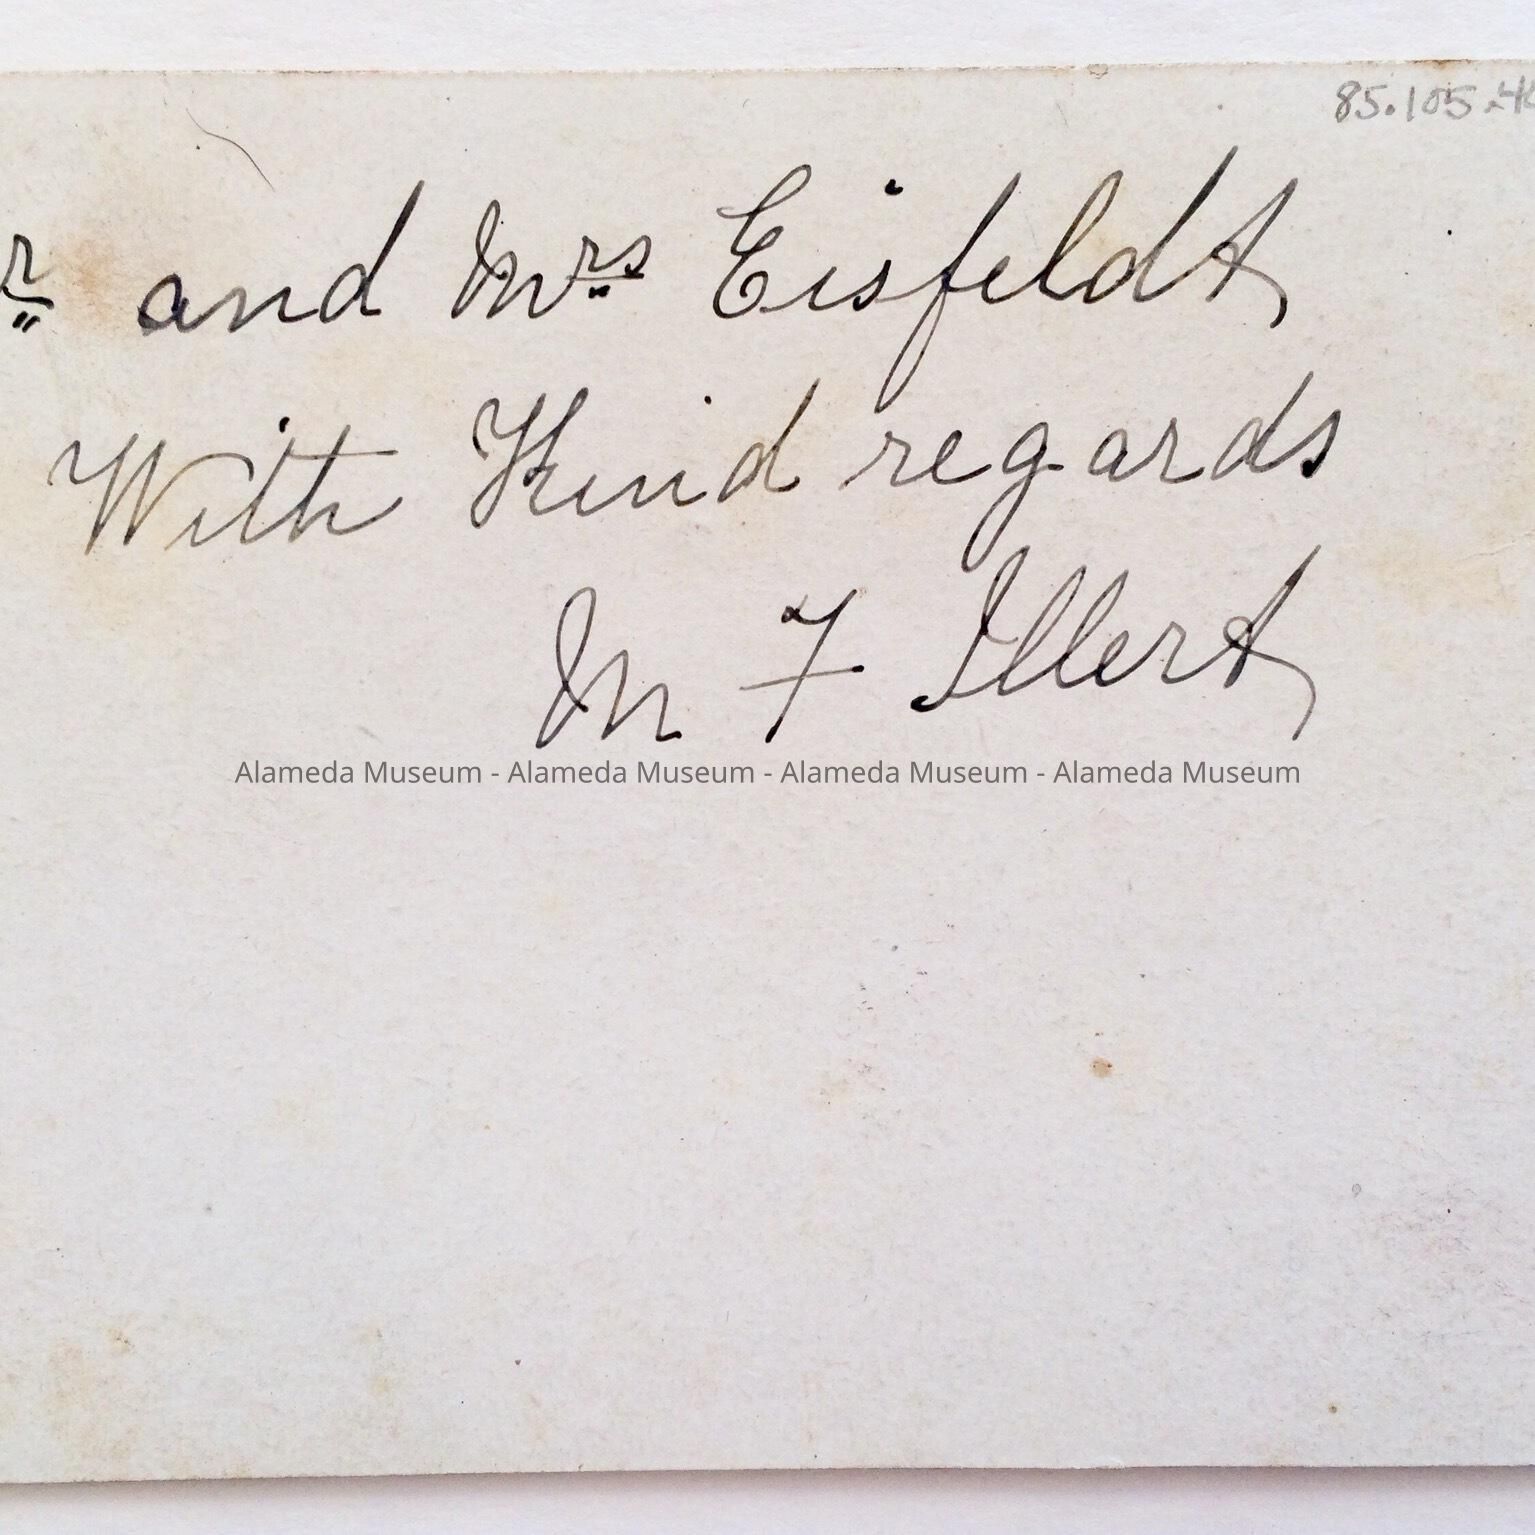 85.105.4
r and Mrs Eisfeldt
With Kind regards
M F Illert
Alameda Museum - Alameda Museum - Alameda Museum - Alameda Museum